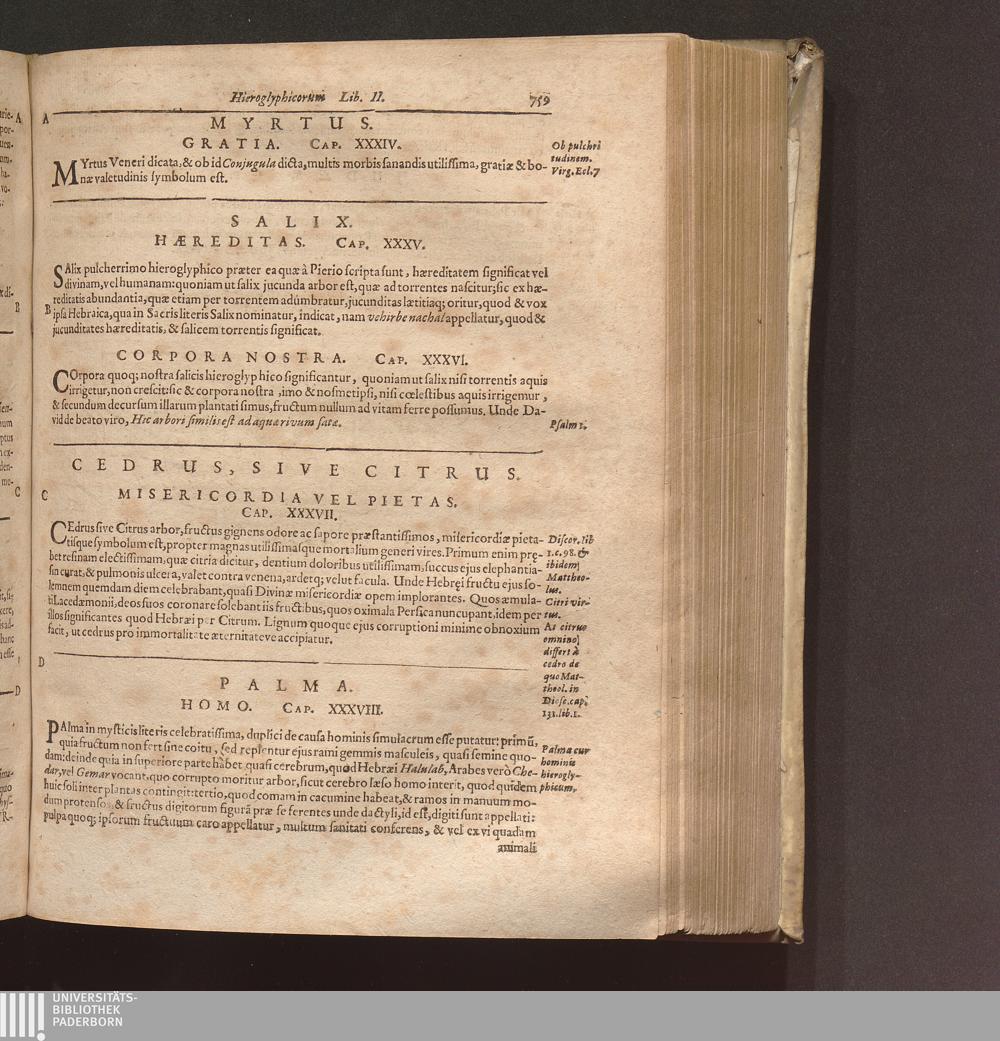 Hieroglyphicorum Lib. II. 759
A
MYRTUS.
GRATIA. CAP. XXXIV.
MYrtus Veneri dicata, & ob id Conjugula dicta, multis morbis sanandis utilissima, gratiæ & bo-
næ valetudinis symbolum est.
Ob pulchri
tudinem.
Virg. Ecl. 7
SALIX.
HÆREDITAS. CAP. XXXV.
SAlix pulcherrimo hieroglyphico præter ea quæ à Pierio scripta sunt, hæreditatem significat vel
divinam, vel humanam: quoniam ut salix jucunda arbor est, quæ ad torrentes nascitur; sic ex hæ-
reditatis abundantia, quæ etiam per torrentem adumbratur, jucunditas lætitiaq; oritur, quod & vox
B
ipsa Hebraica, qua in Sacris literis Salix nominatur, indicat, nam vehirbe nachal appellatur, quod &
jucunditates hæreditatis, & salicem torrentis significat.
CORPORA NOSTRA. CAP. XXXVI.
COrpora quoq; nostra salicis hieroglyphico significantur, quoniam ut salix nisi torrentis aquis
irrigetur, non crescit: sic & corpora nostra, imo & nosmetipsi, nisi cœlestibus aquis irrigemur,
& secundum decursum illarum plantati simus, fructum nullum ad vitam ferre possumus. Unde Da-
vid de beato viro, Hic arbori similis est ad aquæ rivum satæ.
Psalm 1.
CEDRUS, SIVE CITRUS.
C
MISERICORDIA VEL PIETAS.
CAP. XXXVII.
CEdrus sive Citrus arbor, fructus gignens odore ac sapore præstantissimos, misericordiæ pieta-
tisque symbolum est, propter magnas utilissimasque mortalium generi vires. Primum enim prę-
bet resinam electissimam, quæ citria dicitur, dentium doloribus utilissimam, succus ejus elephantia-
sin curat, & pulmonis ulcera, valet contra venena, ardetq; velut facula. Unde Hebręi fructu ejus so-
lemnem quemdam diem celebrabant, quasi Divinæ misericordiæ opem implorantes. Quos æmula-
ti Lacedæmonii, deos suos coronare solebant iis fructibus, quos oximala Persica nuncupant, idem per
illos significantes quod Hebræi per Citrum. Lignum quoque ejus corruptioni minime obnoxium
facit, ut cedrus pro immortalitate æternitateve accipiatur.
Discor. lib
1. c. 98. &
ibidem
Mattheo-
lus.
Citri vir-
tus.
At citrus
omnino
differt à
cedro de
quo Mat-
theol. in
Diosc. cap.
131. lib. 1.
D
PALMA.
HOMO. CAP. XXXVIII.
PAlma in mysticis literis celebratissima, duplici de causa hominis simulacrum esse putatur: primũ,
quia fructum non fert sine coitu, sed replentur ejus rami gemmis masculeis, quasi semine quo-
dam: deinde quia in superiore parte habet quasi cerebrum, quod Hebræi Halulab, Arabes verò Che-
dar, vel Gemar vocant, quo corrupto moritur arbor, sicut cerebro læso homo interit, quod quidem
huic soli inter plantas contingit: tertio, quod comam in cacumine habeat, & ramos in manuum mo-
dum protensos, & fructus digitorum figurã præ se ferentes unde dactyli, id est, digiti sunt appellati:
pulpa quoq; ipsorum fructuum caro appellatur, multum sanitati conferens, & vel ex vi quadam
animali
Palma cur
hominis
hierogly-
phicum.
UNIVERSITÄTS-
BIBLIOTHEK
PADERBORN